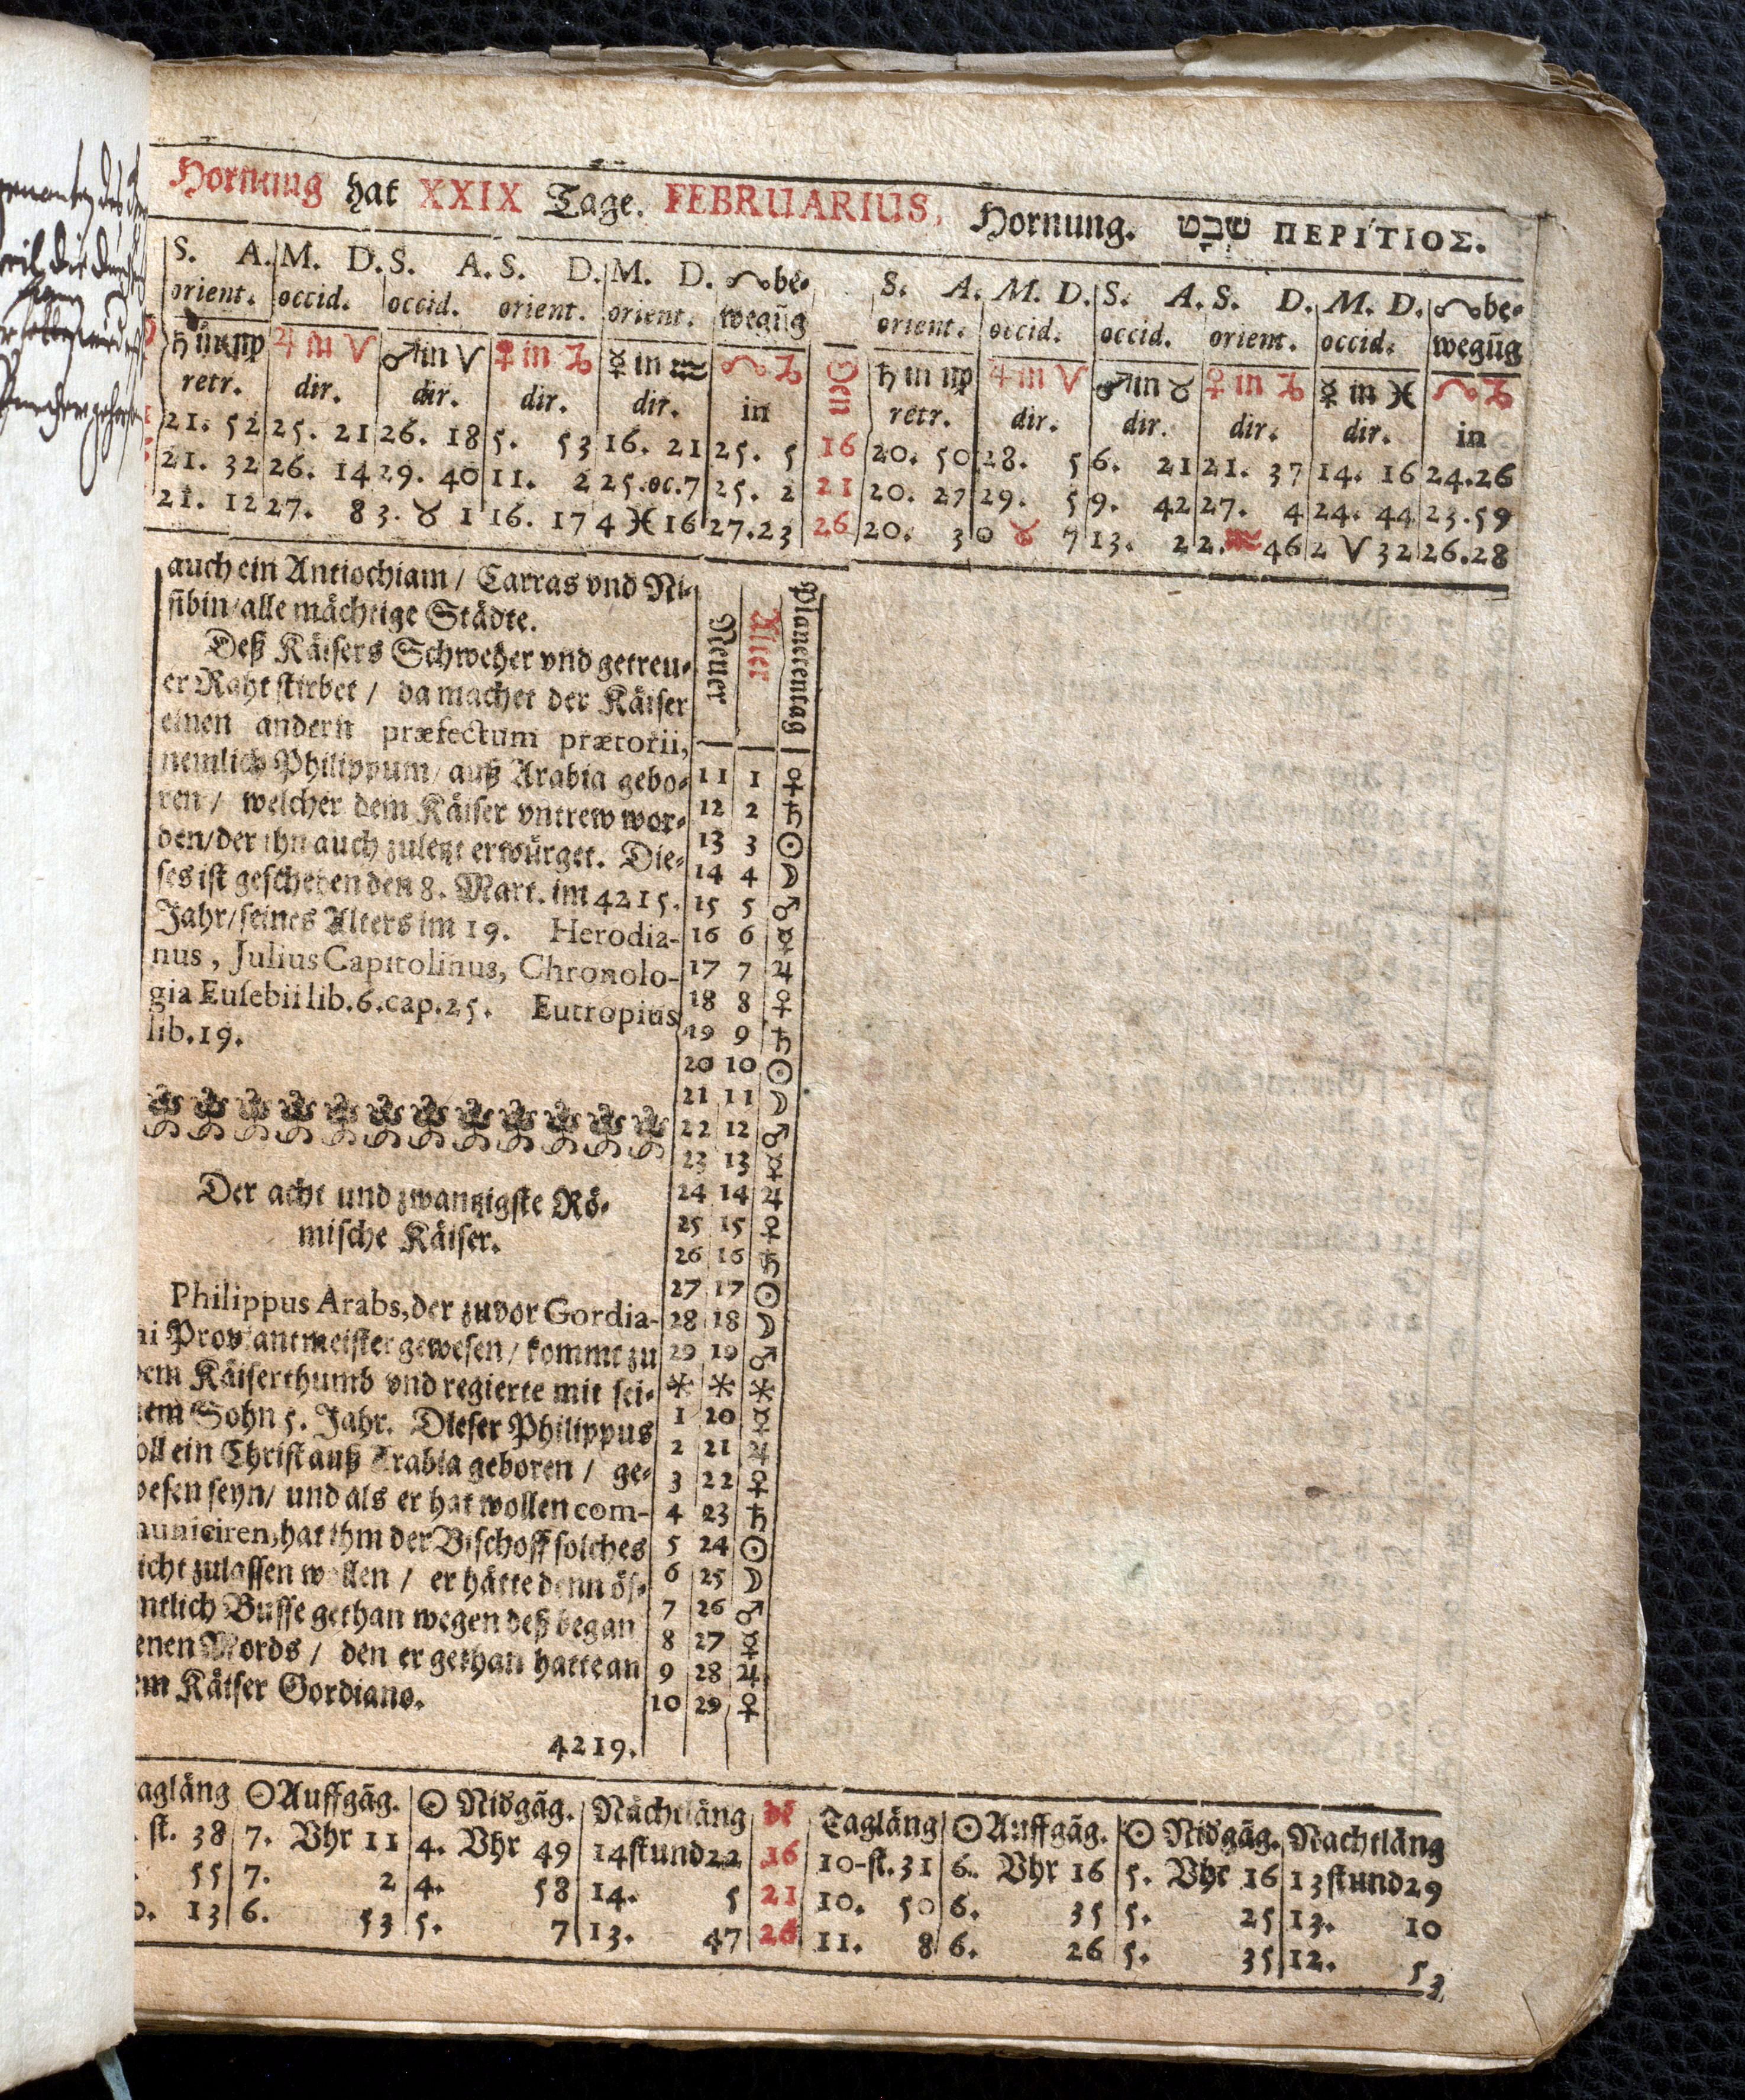 Hornung hat XXIX Tage. FEBRUARIUS, Hornung. שבט ΠΕΡΙΤΙΟΣ.
S. A. M. D. S. A. S. D. M. D. ☊ be- S. A. M. D. S. A. S. D. M. D. ☊ be-
orient. occid. occid. orient. orient. wegũg orient. occid. occid. orient. occid. wegũg
♄ in ♍ ♃ in ♈ ♂ in ♈ ♀ in ♑ ☿ in ♒ ☊ ♑ Den ♄ in ♍ ♃ in ♈ ♂ in ♉ ♀ in ♑ ☿ in ♓ ☊ ♑
retr. dir. dir. dir. dir. in retr. dir. dir. dir. dir. in
21. 52 25. 21 26. 18 5. 53 16. 21 25. 5 16 20. 50 28. 5 6. 21 21. 37 14. 16 24.26
21. 32 26. 14 29. 40 11. 2 25.oc.7 25. 2 21 20. 27 29. 5 9. 42 27. 4 24. 44 23.59
21. 12 27. 8 3. ♉ 1 16. 17 4 ♓ 16 27.23 26 20. 3 0 ♉ 7 13. 2 2. ♒ 46 2 ♈ 32 26.28
auch ein Antiochiam / Carras vnd Ni-
sibin/alle mächtige Städte.
Deß Käisers Schweher vnd getreu-
er Raht stirbet / da machet der Käiser
einen andern præfectum prætorii,
nemlich Philippum/ auß Arabia gebo-
ren / welcher dem Käiser vntrew wor-
den/der ihn auch zuletzt erwürget. Die-
ses ist geschehen den 8. Mart. im 4215.
Jahr/seines Alters im 19. Herodia-
nus, Julius Capitolinus, Chronolo-
gia Eusebii lib.6.cap.25. Eutropius
lib.19.
Der acht und zwantzigste Rö-
mische Käiser.
Philippus Arabs, der zuvor Gordia-
ni Proviantmeister gewesen / kommt zu
dem Käiserthumb vnd regierte mit sei-
nem Sohn 5. Jahr. Dieser Philippus
soll ein Christ auß Arabia geboren / ge-
wesen seyn/ und als er hat wollen com-
municiren, hat ihm der Bischoff solches
nicht zulassen wollen / er hätte denn öf-
entlich Busse gethan wegen deß began
enen Mords / den er gethan hatte an
dem Käiser Gordiano.
4219.
Neuer Alter Planetentag
11 1 ♀
12 2 ♄
13 3 ☉
14 4 ☽
15 5 ♂
16 6 ☿
17 7 ♃
18 8 ♀
19 9 ♄
20 10 ☉
21 11 ☽
22 12 ♂
23 13 ☿
24 14 ♃
25 15 ♀
26 16 ♄
27 17 ☉
28 18 ☽
29 19 ♂
* * *
1 20 ☿
2 21 ♃
3 22 ♀
4 23 ♄
5 24 ☉
6 25 ☽
7 26 ♂
8 27 ☿
9 28 ♃
10 29 ♀
agläng ☉Auffgãg. ☉ Nidgãg. Nachtläng Tagläng ☉Auffgãg. ☉ Nidgãg. Nachtläng
st. 38 7. Vhr 11 4. Vhr 49 14stund22 16 10-st.31 6. Vhr 16 5. Vhr 16 13stund29
55 7. 2 4. 58 14. 5 21 10. 50 6. 35 5. 25 13. 10
0. 13 6. 53 5. 7 13. 47 26 11. 8 6. 26 5. 35 12. 53